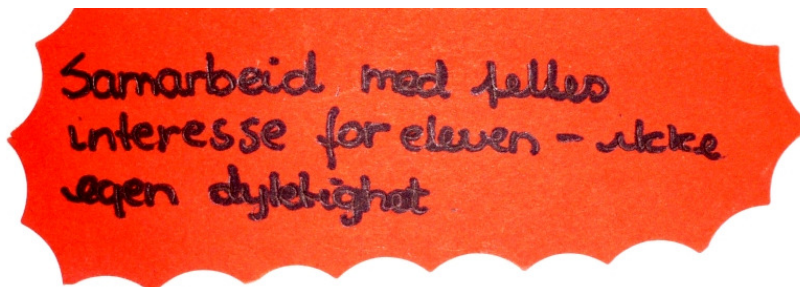 Samarbeid med felles
interesse for eleven - ikke
egen dyktighet